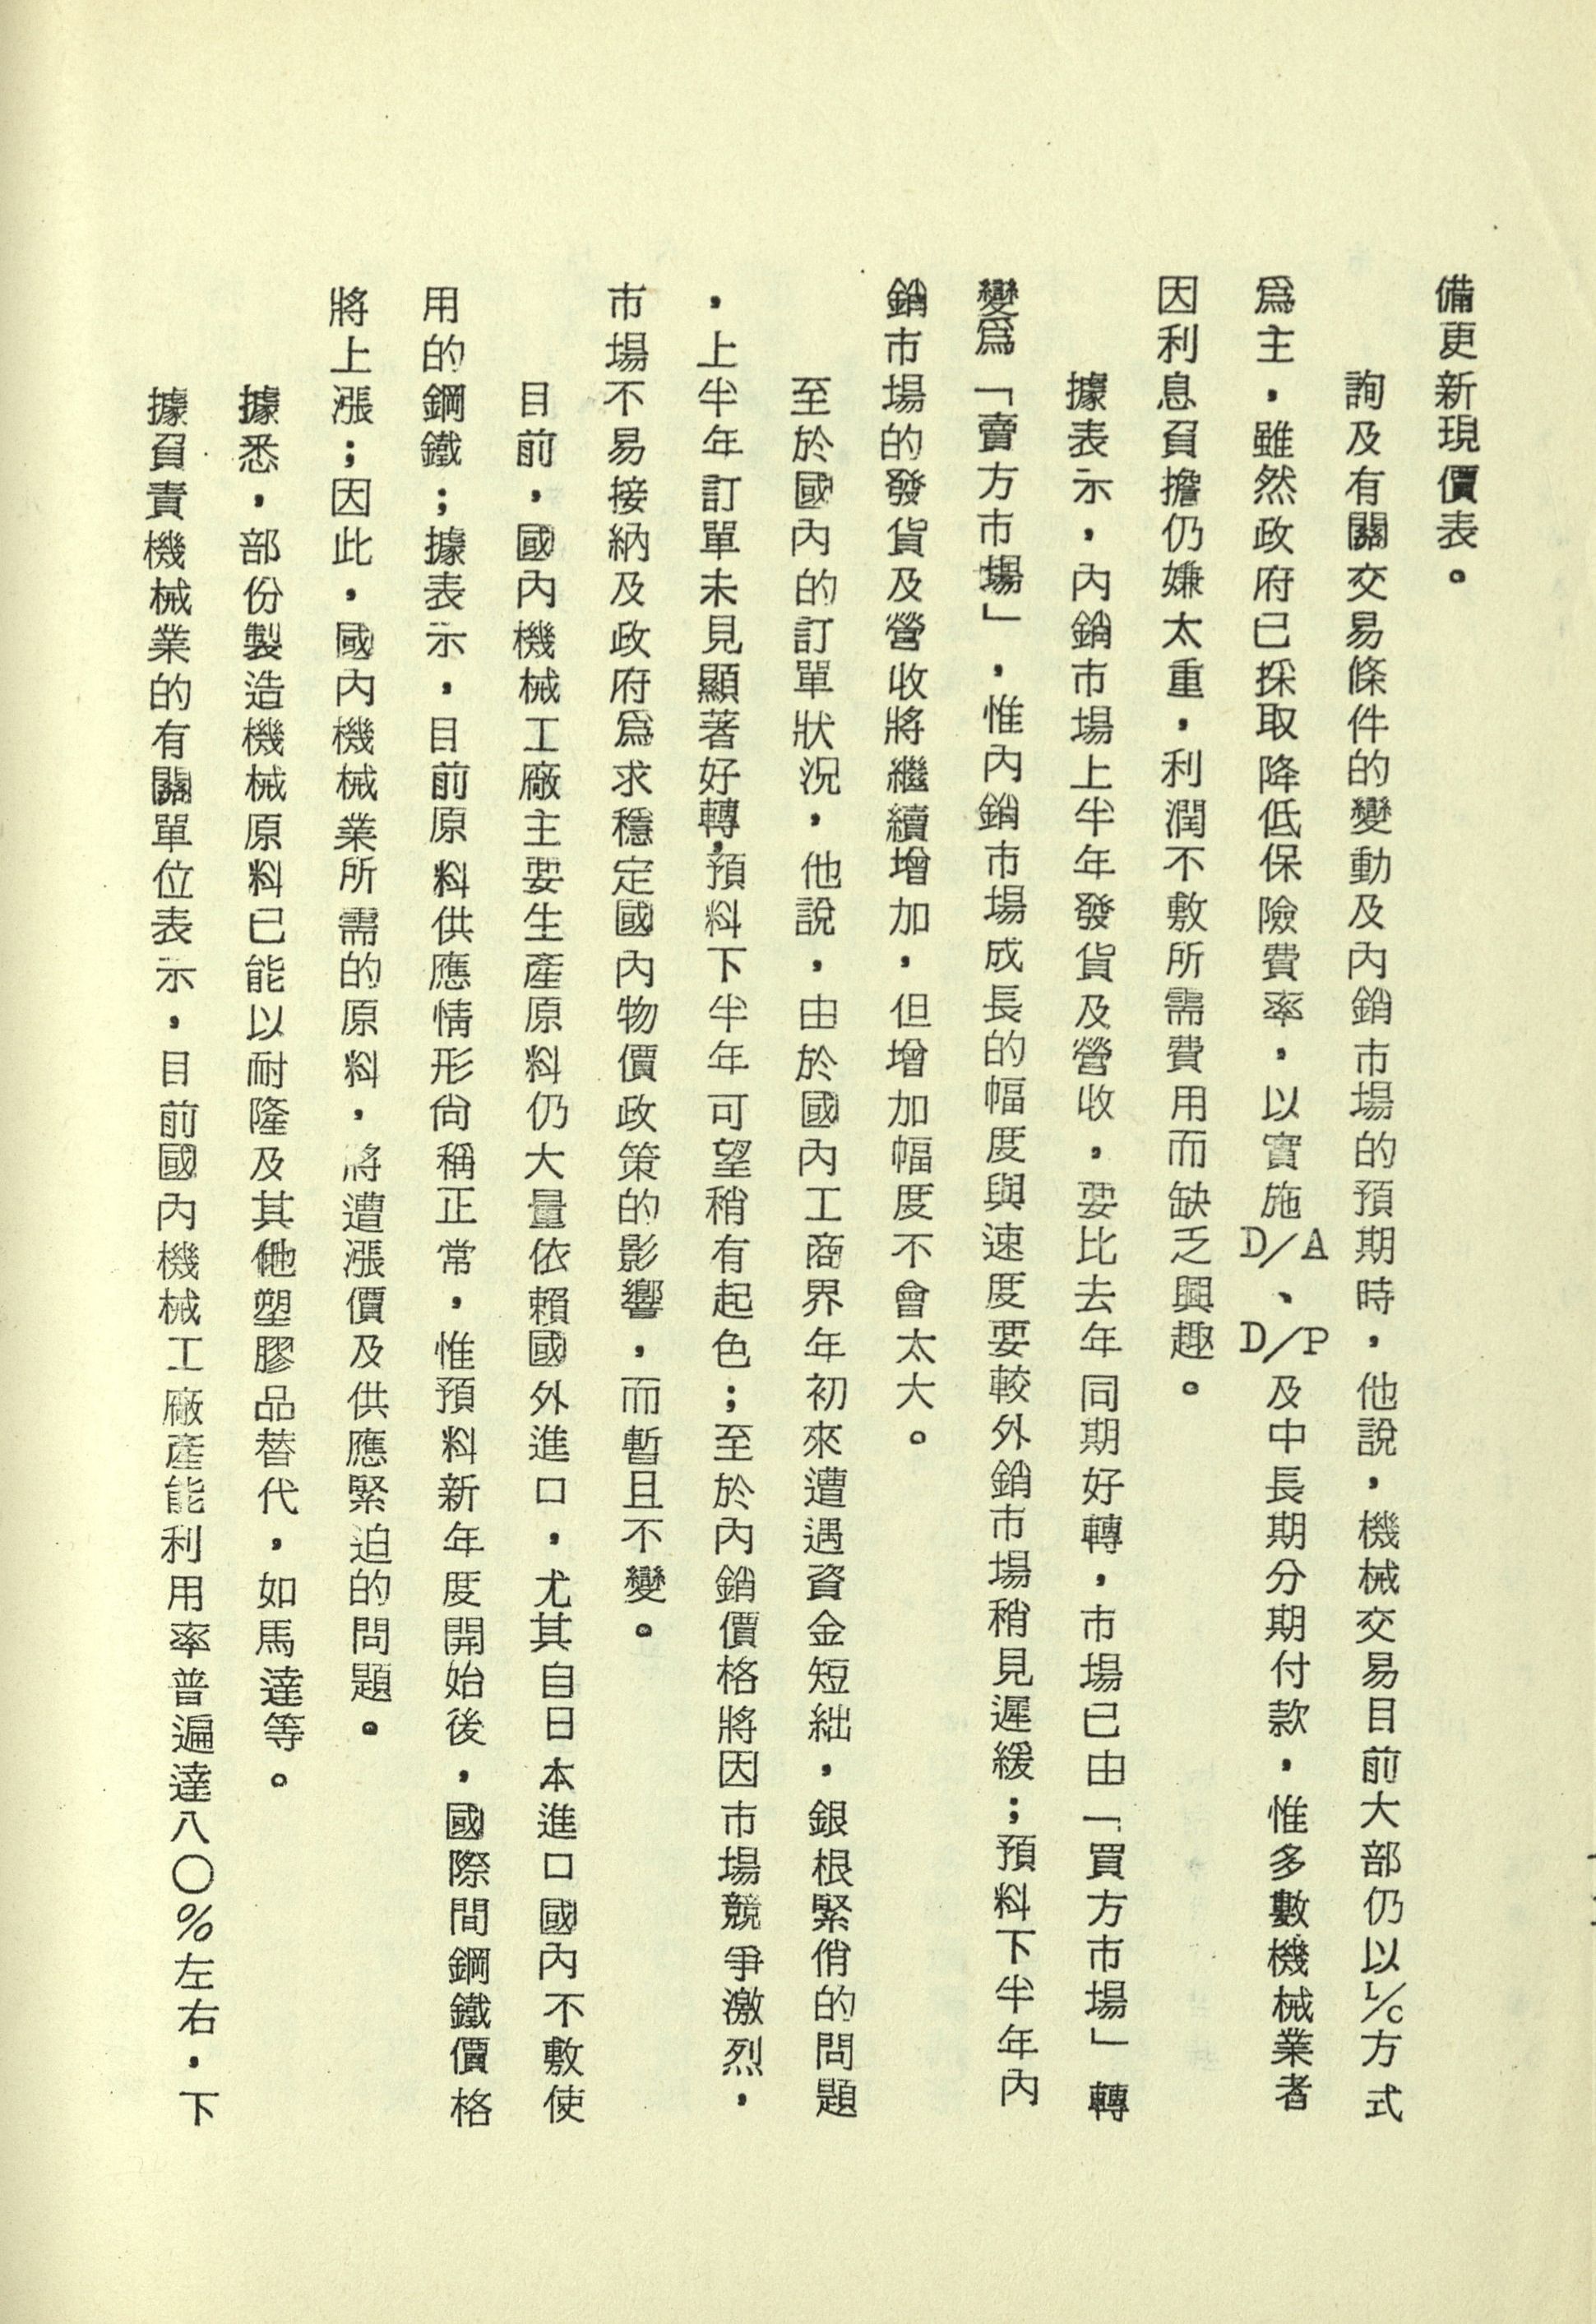 備更新現價表。
詢及有關交易條件的變動及內銷市場的預期時，他說，機械交易目前大部仍以L/C方式
爲主，雖然政府已採取降低保險費率，以實施D/A、D/P及中長期分期付款，惟多數機械業者
因利息負擔仍嫌太重，利潤不敷所需費用而缺乏興趣。
據表示，內銷市場上半年發貨及營收，要比去年同期好轉，市場已由「買方市場」轉
變爲「賣方市場」，惟內銷市場成長的幅度與速度要較外銷市場稍見遲緩；預料下半年內
銷市場的發貨及營收將繼續增加，但增加幅度不會太大。
至於國內的訂單狀況，他說，由於國內工商界年初來遭遇資金短絀，銀根緊俏的問題
，上半年訂單未見顯著好轉，預料下半年可望稍有起色；至於內銷價格將因市場競爭激烈，
市場不易接納及政府爲求穩定國內物價政策的影響，而暫且不變。
目前，國內機械工廠主要生產原料仍大量依賴國外進口，尤其自日本進口國內不敷使
用的鋼鐵；據表示，目前原料供應情形尙稱正常，惟預料新年度開始後，國際間鋼鐵價格
將上漲；因此，國內機械業所需的原料，將遭漲價及供應緊迫的問題。
據悉，部份製造機械原料已能以耐隆及其他塑膠品替代，如馬達等。
據負責機械業的有關單位表示，目前國內機械工廠產能利用率普遍達八〇%左右，下